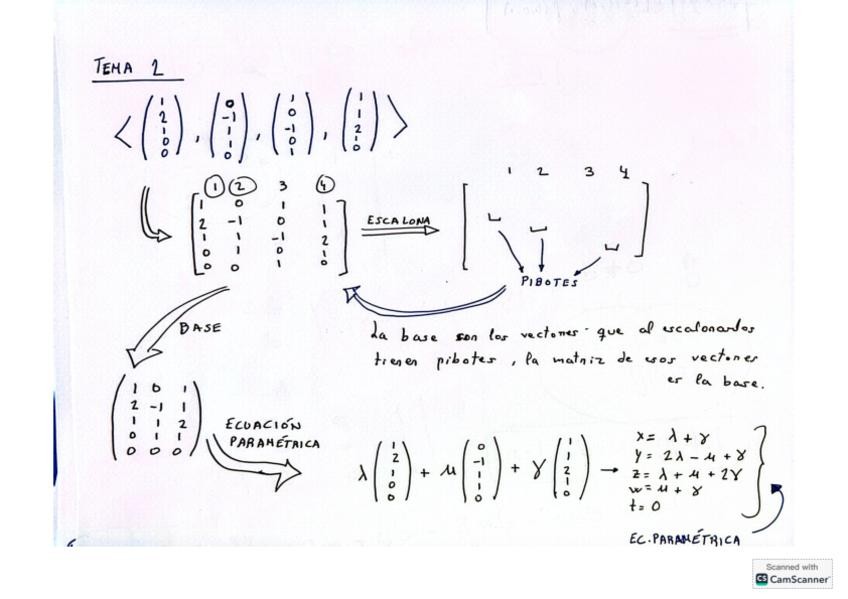 TEMA 2
< (1 2 1 0 0), (0 -1 1 1 0), (1 0 -1 0 1), (1 1 2 1 0) >
1 2 3 4
1 0 1 1
2 -1 0 1
1 1 -1 2
0 1 0 1
0 0 1 0
ESCALONA
1 2 3 4
PIBOTES
BASE
La base son los vectores que al escalonarlos
tienen pibotes, la matriz de esos vectores
es la base.
1 0 1
2 -1 1
1 1 2
0 1 1
0 0 0
ECUACIÓN
PARAMÉTRICA
λ (1 2 1 0 0) + μ (0 -1 1 1 0) + γ (1 1 2 1 0) →
x = λ + γ
y = 2λ - μ + γ
z = λ + μ + 2γ
w = μ + γ
t = 0
EC. PARAMÉTRICA
Scanned with
CS CamScanner